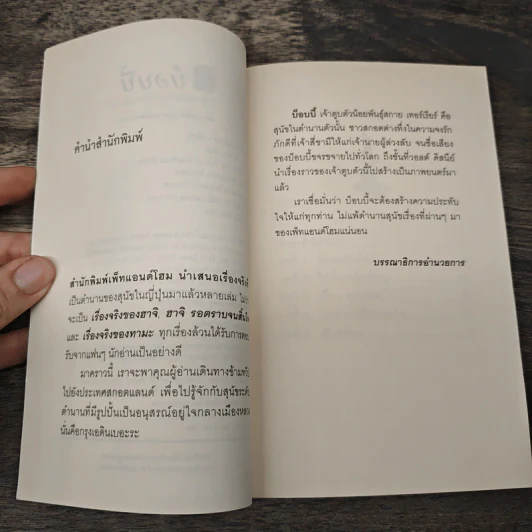 คำนำสำนักพิมพ์
สำนักพิมพ์เพ็ทแอนด์โฮม นำเสนอเรื่องจริง
เป็นตำนานของสุนัขในญี่ปุ่นมาแล้วหลายเล่ม
จะเป็น เรื่องจริงของฮาจิ, ฮาจิ รอตราบจนสิ้น
และ เรื่องจริงของทามะ ทุกเรื่องล้วนได้รับการตอบ
รับจากแฟนๆ นักอ่านเป็นอย่างดี
มาคราวนี้ เราจะพาคุณผู้อ่านเดินทางข้ามทวีป
ไปยังประเทศสกอตแลนด์ เพื่อไปรู้จักกับสุนัขระดับ
ตำนานที่มีรูปปั้นเป็นอนุสรณ์อยู่ใจกลางเมืองหลวง
นั่นคือกรุงเอดินเบอะระ
บ๊อบบี้ เจ้าตูบตัวน้อยพันธุ์สกาย เทอร์เรียร์ คือ
สุนัขในตำนานตัวนั้น ชาวสกอตต่างทึ่งในความจงรัก
ภักดีที่เจ้าสี่ขามีให้แก่เจ้านายผู้ล่วงลับ จนชื่อเสียง
ของบ๊อบบี้ขจรขจายไปทั่วโลก ถึงขั้นที่วอลต์ ดิสนีย์
นำเรื่องราวของเจ้าตูบตัวนี้ไปสร้างเป็นภาพยนตร์มา
แล้ว
เราเชื่อมั่นว่า บ๊อบบี้จะต้องสร้างความประทับ
ใจให้แก่ทุกท่าน ไม่แพ้ตำนานสุนัขเรื่องที่ผ่านๆ มา
ของเพ็ทแอนด์โฮมแน่นอน
บรรณาธิการอำนวยการ